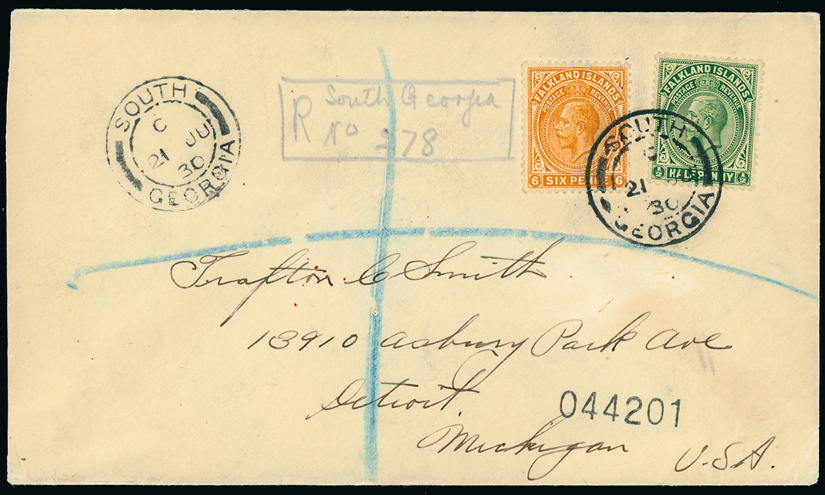 SOUTH
C
21 JU
30
GEORGIA
R South Georgia
No 278
FALKLAND ISLANDS
POSTAGE REVENUE
6 SIX PENCE 6
FALKLAND ISLANDS
POSTAGE REVENUE
½ HALFPENNY ½
SOUTH
C
21
30
GEORGIA
Trafton C Smith
13910 Asbury Park Ave
Detroit
044201
Michigan U.S.A.